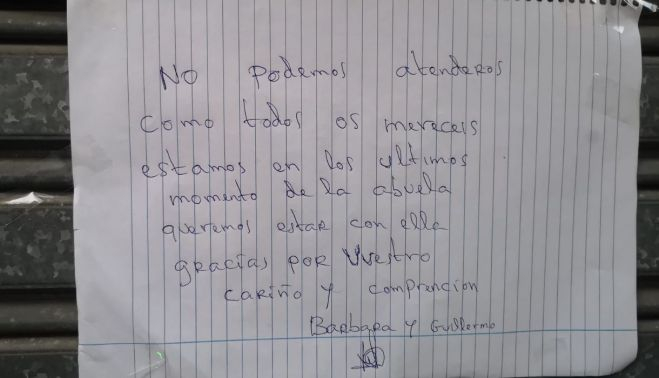 No podemos atenderos
como todos os mereceis
estamos en los ultimos
momento de la abuela
queremos estar con ella
gracias por vuestro
cariño y comprencion
Barbara y Guillermo